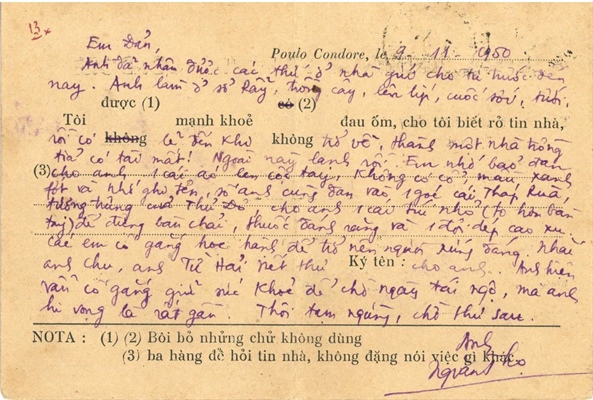 13x
Em Đản,
Poulo Condore, le 9-11-1950
Anh đã nhận được các thư ở nhà gửi cho từ trước đến
nay. Anh làm ở sở Rẫy, trồng cây, lên líp, cuốc xới, tưới,
được (1) có (2)
Tôi mạnh khoẻ đau ốm, cho tôi biết rõ tin nhà,
rồi có lẽ đến khi trở về, thành một nhà trồng
không không
tỉa có tài mất! Ngoài này lạnh rồi. Em nhớ bảo đan
(3) cho anh 1 cái áo len cộc tay, không có cổ màu xanh
và nhớ ghi tên, số anh cùng đan vào 1 góc cái Tháp Rùa,
tượng trưng của Thủ Đô cho anh 1 cái túi nhỏ (to hơn bàn
tay) để đựng bàn chải, thuốc đánh răng và 1 đôi dép cao su.
Các em cố gắng học hành để trở nên người xứng đáng. Nhắc
anh Chu, anh Từ Hải viết thư cho anh. Anh hiện
Ký tên :
vẫn cố gắng giữ sức khoẻ để chờ ngày tái ngộ, mà anh
hi vọng là rất gần. Thôi tạm ngừng, chờ thư sau.
NOTA : (1) (2) Bôi bỏ những chử không dùng
(3) ba hàng để hỏi tin nhà, không đặng nói việc gì khác
Anh